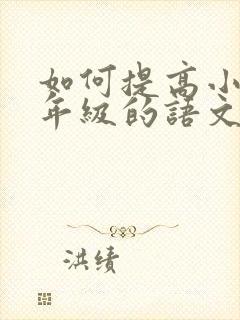 如何提高小
年级的语文
洪绩